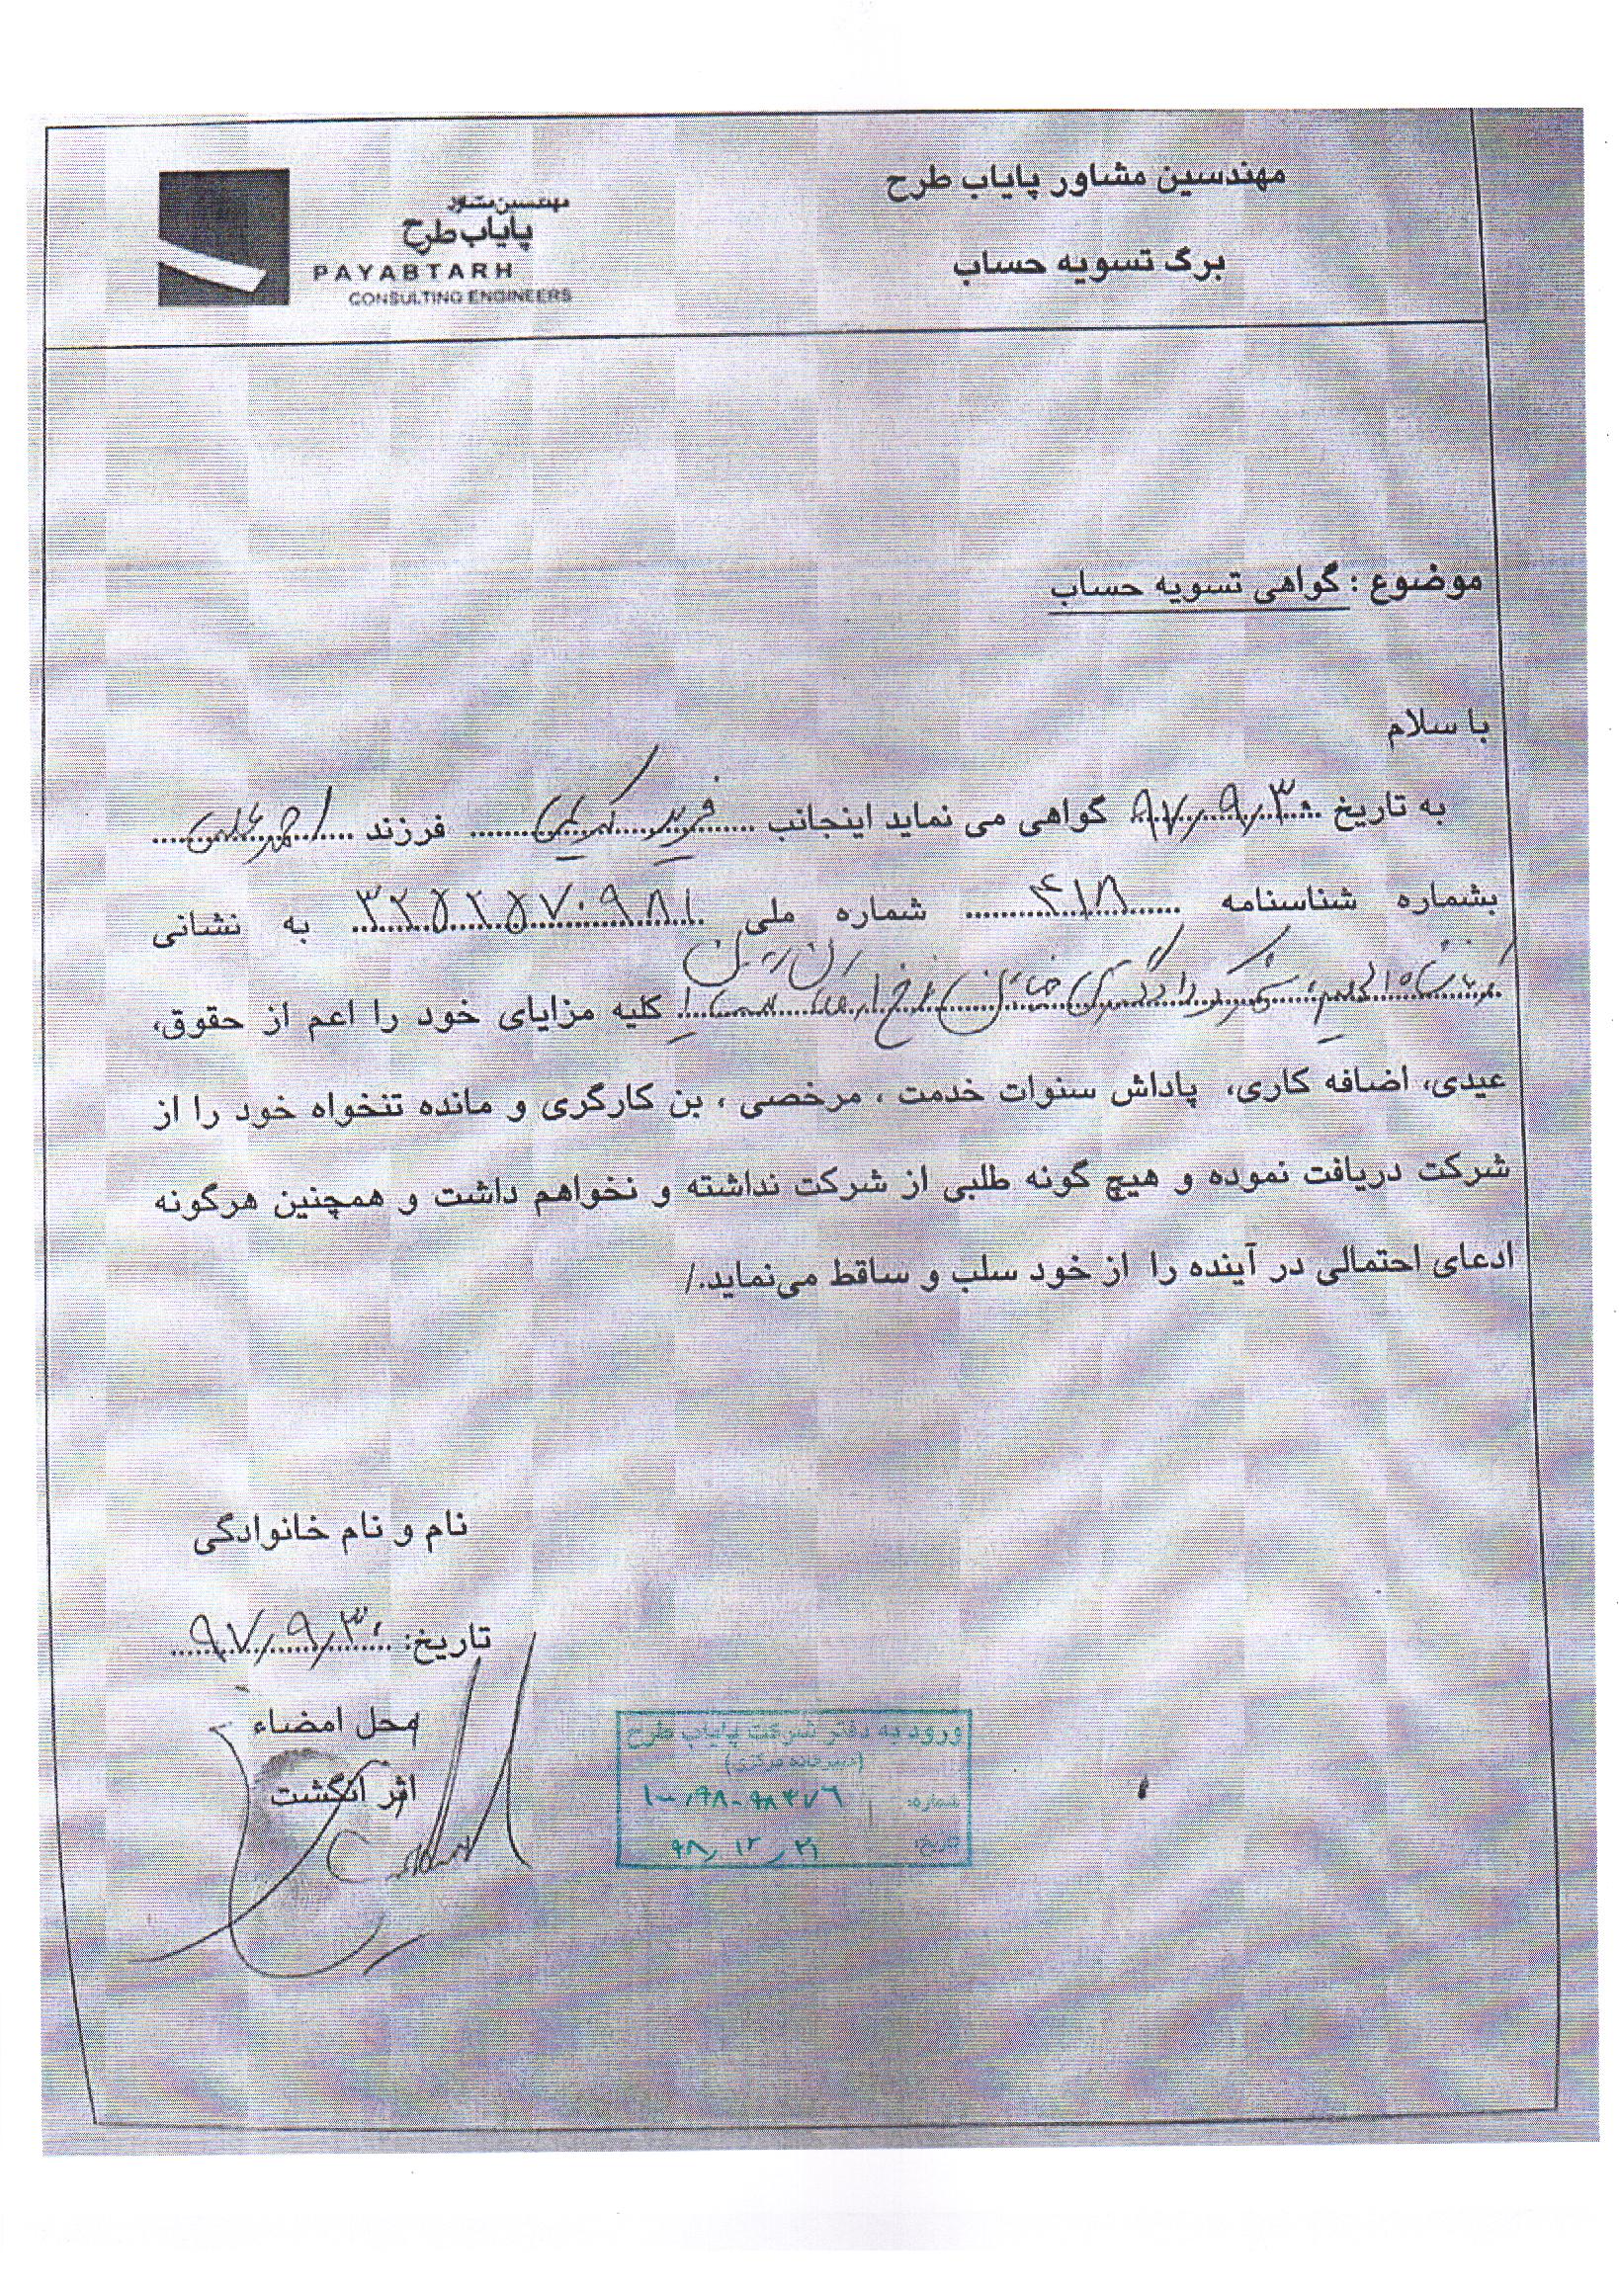 مهندسین مشاور پایاب طرح
برگ تسویه حساب
مهندسین مشاور
پایاب طرح
PAYABTARH
CONSULTING ENGINEERS
موضوع : گواهی تسویه حساب
با سلام
به تاریخ ۹۷/۹/۳۰ گواهی می نماید اینجانب فرید کریمی فرزند احمد
بشماره شناسنامه ۴۱۸ شماره ملی ۳۲۵۲۵۷۰۹۸۱ به نشانی
کرمانشاه کلیه مزایای خود را اعم از حقوق،
عیدی، اضافه کاری، پاداش سنوات خدمت ، مرخصی ، بن کارگری و مانده تنخواه خود را از
شرکت دریافت نموده و هیچ گونه طلبی از شرکت نداشته و نخواهم داشت و همچنین هرگونه
ادعای احتمالی در آینده را از خود سلب و ساقط می‌نماید./
نام و نام خانوادگی
تاریخ: ۹۷/۹/۳۰
محل امضاء
اثر انگشت
ورود به دفتر شرکت پایاب طرح
(دبیرخانه مرکزی)
شماره:
تاریخ: ۹۸/۱۲/۲۱